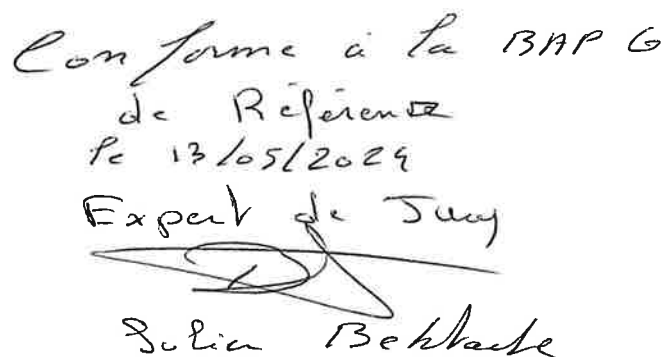 Conforme à la BAP G
de Référence
le 13/05/2024
Expert de Jury
Julien